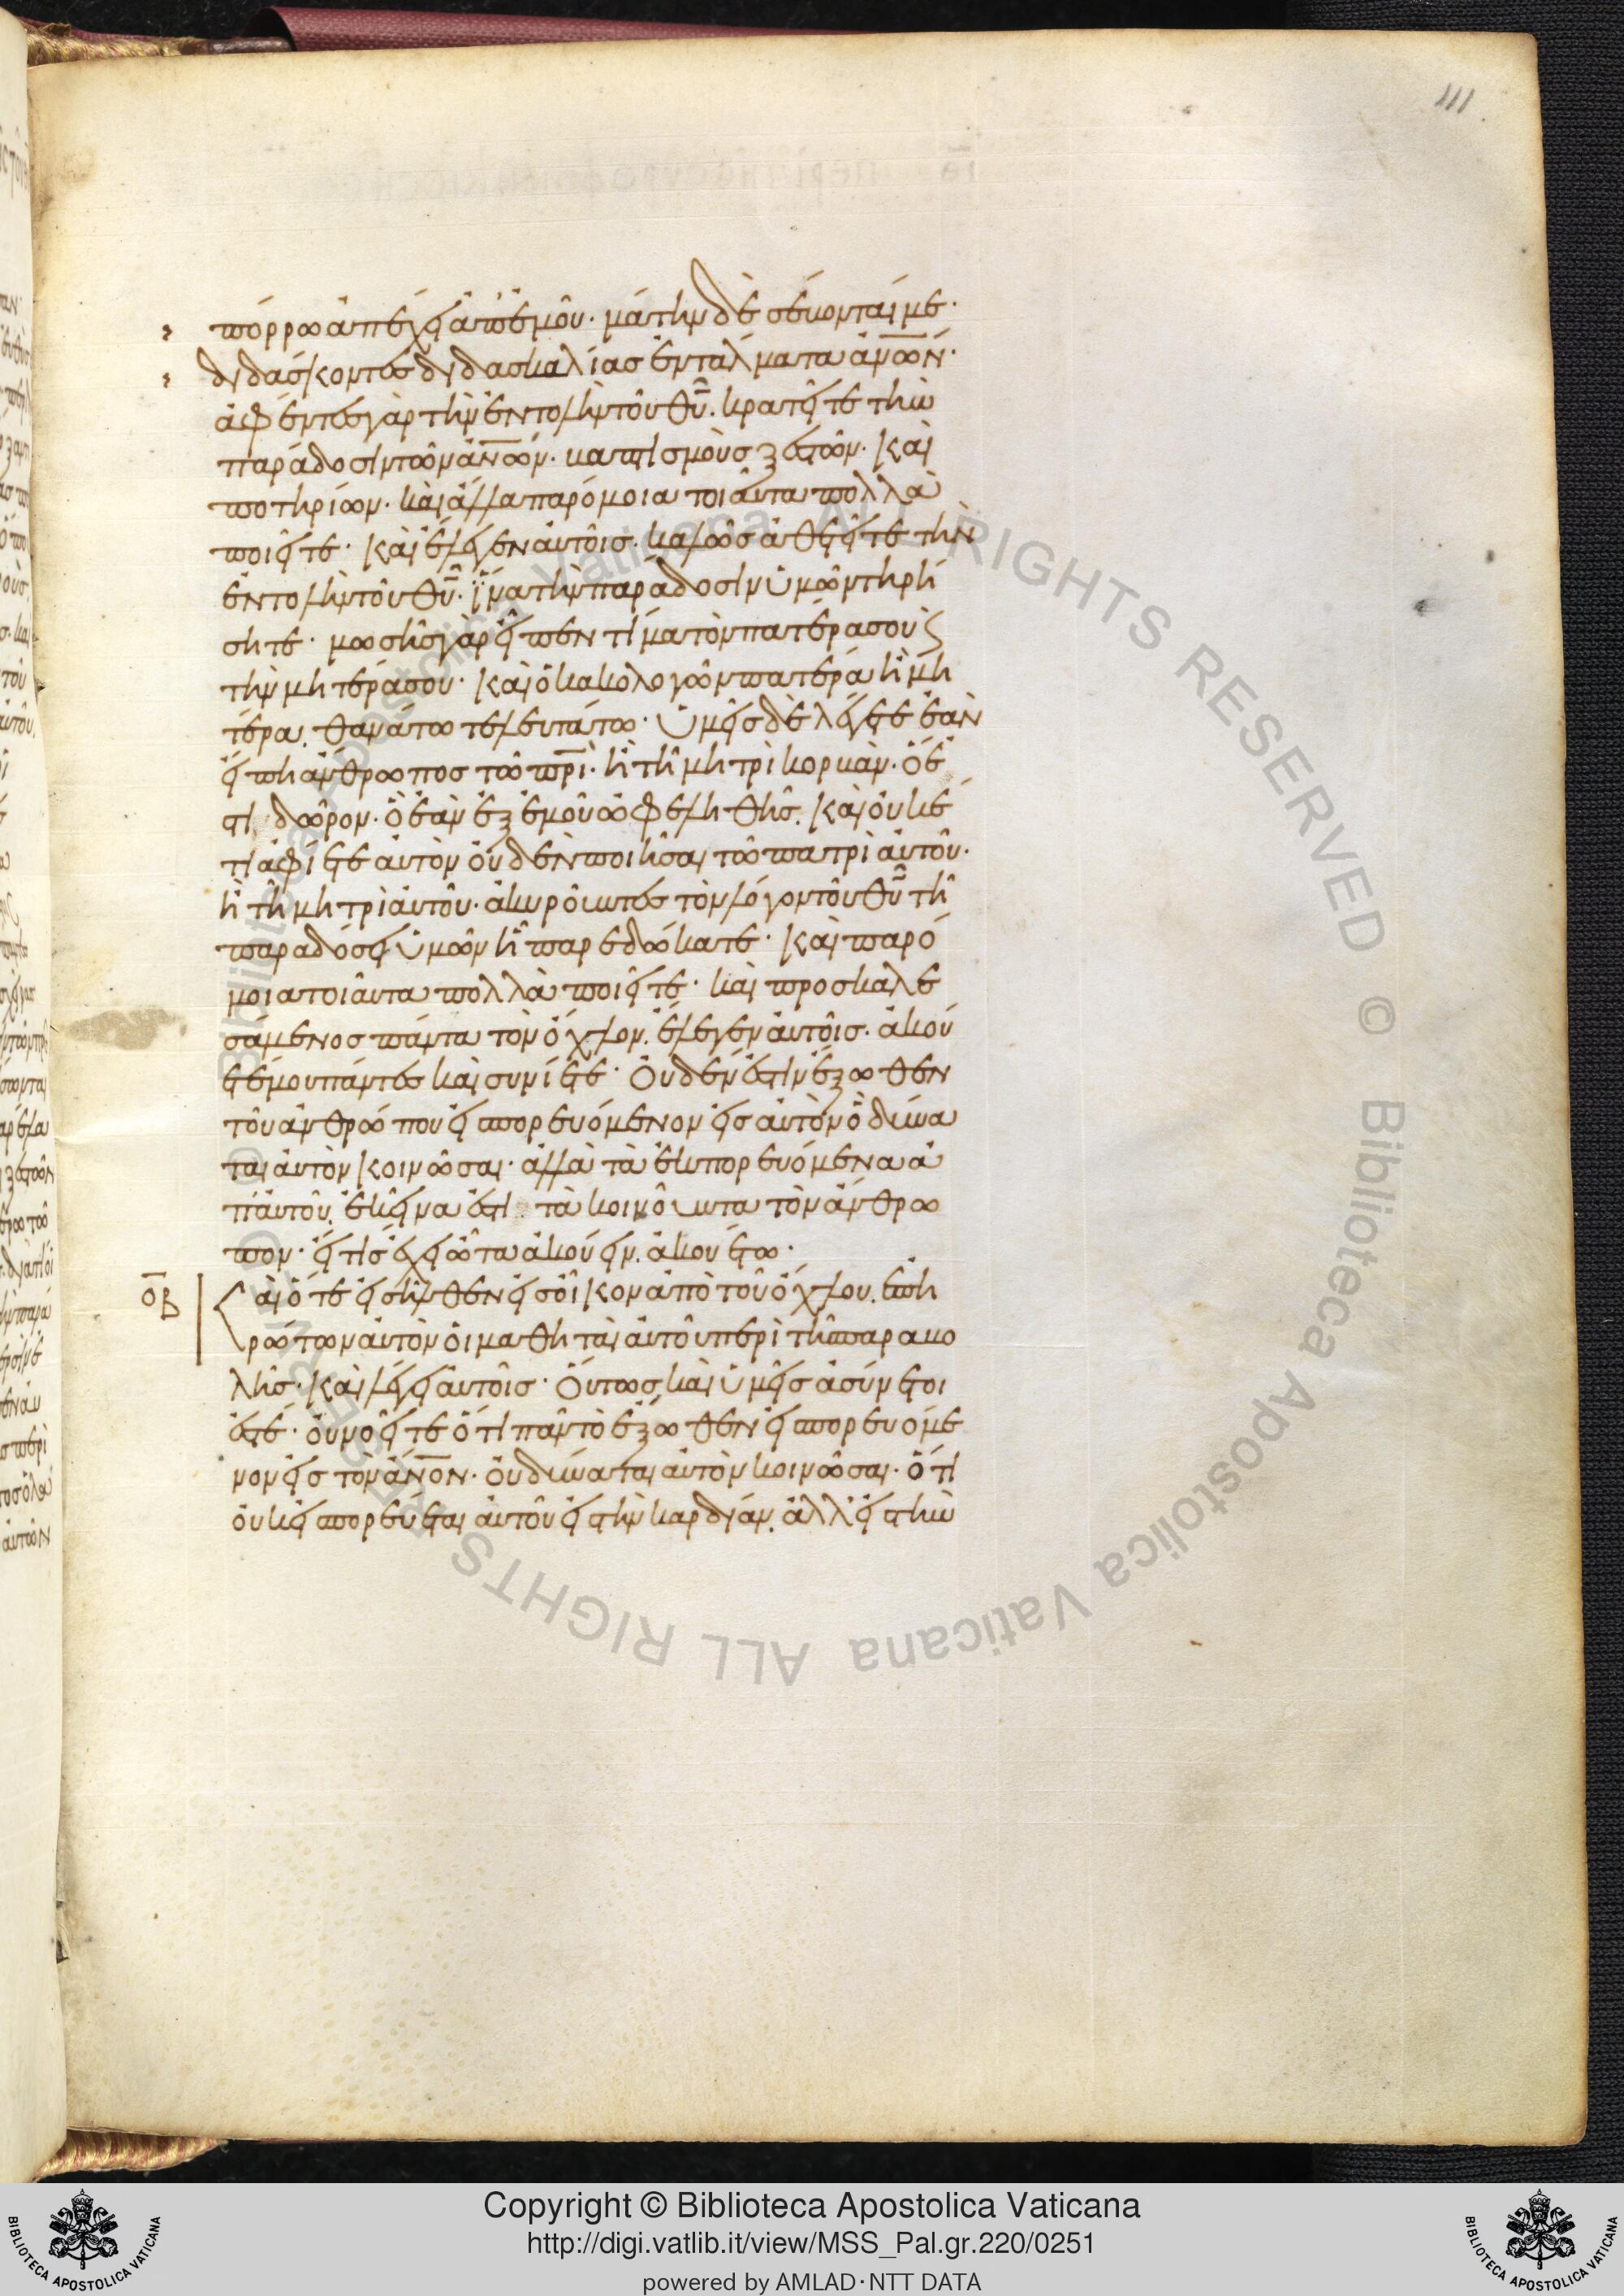 111
πόρρω ἀπέχει ἀπ' ἐμοῦ· μάτην δὲ σέβονταί με·
διδάσκοντες διδασκαλίας ἐντάλματα ἀν̅ω̅ν̅·
ἀφέντες γὰρ τὴν ἐντολὴν τοῦ θ̅υ̅. κρατεῖτε τὴν
παράδοσιν τῶν ἀν̅ω̅ν̅. βαπτισμοὺς ξεστῶν· καὶ
ποτηρίων· καὶ ἄλλα παρόμοια τοιαῦτα πολλὰ
ποιεῖτε· καὶ ἔλεγεν αὐτοῖς. καλῶς ἀθετεῖτε τὴν
ἐντολὴν τοῦ θ̅υ̅. ἵνα τὴν παράδοσιν ὑμῶν τηρή
σητε· μωσῆς γὰρ εἶπεν τίμα τὸν πατέρα σου ϗ
τὴν μητέρα σου· καὶ ὁ κακολογῶν πατέρα ἢ μη
τέρα. θανάτω τελευτάτω· ὑμεῖς δὲ λέγετε ἐὰν
εἴπη ἄνθρωπος τῶ π̅ρ̅ι̅. ἢ τῆ μητρὶ κορβὰν. ὅ ἐ
στι δῶρον. ὃ ἐὰν ἐξ ἐμοῦ ὠφεληθῆς. καὶ οὐκέ
τι ἀφίετε αὐτὸν οὐδὲν ποιῆσαι τῶ πατρὶ αὐτοῦ.
ἢ τῆ μητρὶ αὐτοῦ. ἀκυροῦντες τὸν λόγον τοῦ θ̅υ̅ τῆ
παραδόσει ὑμῶν ἧ παρεδώκατε· καὶ παρό
μοια τοιαῦτα πολλὰ ποιεῖτε· καὶ προσκαλε
σάμενος πάντα τὸν ὄχλον. ἔλεγεν αὐτοῖς. ἀκού
ετέ μου πάντες καὶ συνίετε· Οὐδέν ἐστιν ἔξωθεν
τοῦ ἀνθρώπου εἰσπορευόμενον εἰς αὐτὸν ὃ δύνα
ται αὐτὸν κοινῶσαι. ἀλλὰ τὰ ἐκπορευόμενα ἀ
π' αὐτοῦ. ἐκεῖνα ἐστι τὰ κοινοῦντα τὸν ἄνθρω
πον. εἴ τις ἔχει ὦτα ἀκούειν. ἀκουέτω·
ο̅β̅ Καὶ ὅτε εἰσῆλθεν εἰς οἶκον ἀπὸ τοῦ ὄχλου. ἐπη
ρώτων αὐτὸν οἱ μαθηταὶ αὐτοῦ περὶ τῆς παραβο
λῆς. καὶ λέγει αὐτοῖς· Οὕτως καὶ ὑμεῖς ἀσύνετοι
ἐστέ· οὐ νοεῖτε ὅτι πᾶν τὸ ἔξωθεν εἰσπορευόμε
νον εἰς τὸν ἄν̅ο̅ν̅. οὐ δύναται αὐτὸν κοινῶσαι. ὅτι
οὐκ εἰσπορεύεται αὐτοῦ εἰς τὴν καρδίαν. ἀλλ' εἰς τὴν
Copyright © Biblioteca Apostolica Vaticana
http://digi.vatlib.it/view/MSS_Pal.gr.220/0251
powered by AMLAD·NTT DATA
BIBLIOTECA APOSTOLICA VATICANA
BIBLIOTECA APOSTOLICA VATICANA
© Biblioteca Apostolica Vaticana ALL RIGHTS RESERVED © Biblioteca Apostolica Vaticana ALL RIGHTS RESERVED